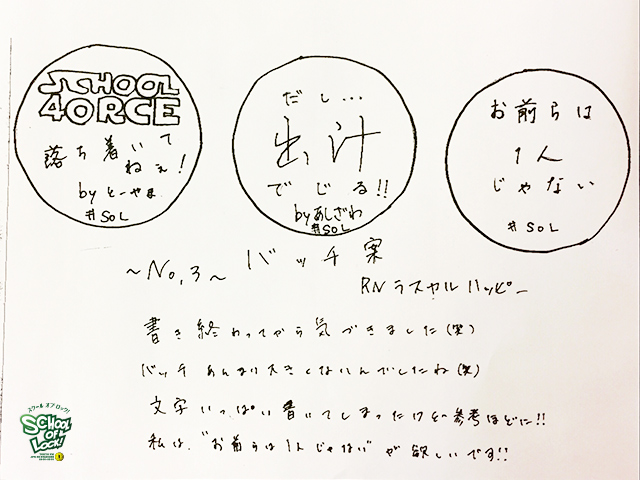 SCHOOL
4ORCE
落ち着いて
ねぇ!
by とーやま
#SOL
だし...
出汁
でじる!!
by あしざわ
#SOL
お前らは
1人
じゃない
#SOL
~No,3~ バッチ案
RN ラスカルハッピー
書き終わってから気づきました(笑)
バッチあんまり大きくないんでしたね(笑)
文字いっぱい書いてしまったけど参考ほどに!!
私は、"お前らは1人じゃない"が欲しいです!!
スクール オブ ロック!
SCHOOL
OF
LOCK!